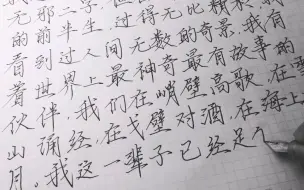 无邪二字
的前半生,过得无比
看到过人间无数的奇景,我有
着世界上最神奇最有故事的
伙伴,我们在峭壁高歌,在
山诵经,在戈壁对酒,在海上
月。我这一辈子已经足